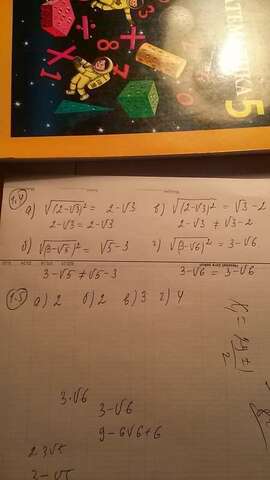 МАТЕМАТИКА 5
1.4
а) √(2-√3)² = 2-√3
2-√3 = 2-√3
в) √(2-√3)² = √3-2
2-√3 ≠ √3-2
б) √(3-√5)² = √5-3
3-√5 ≠ √5-3
г) √(3-√6)² = 3-√6
3-√6 = 3-√6
1.5 а) 2 б) 2 в) 3 г) 4
3·√6
3-√6
9-6√6+6
2·3√5